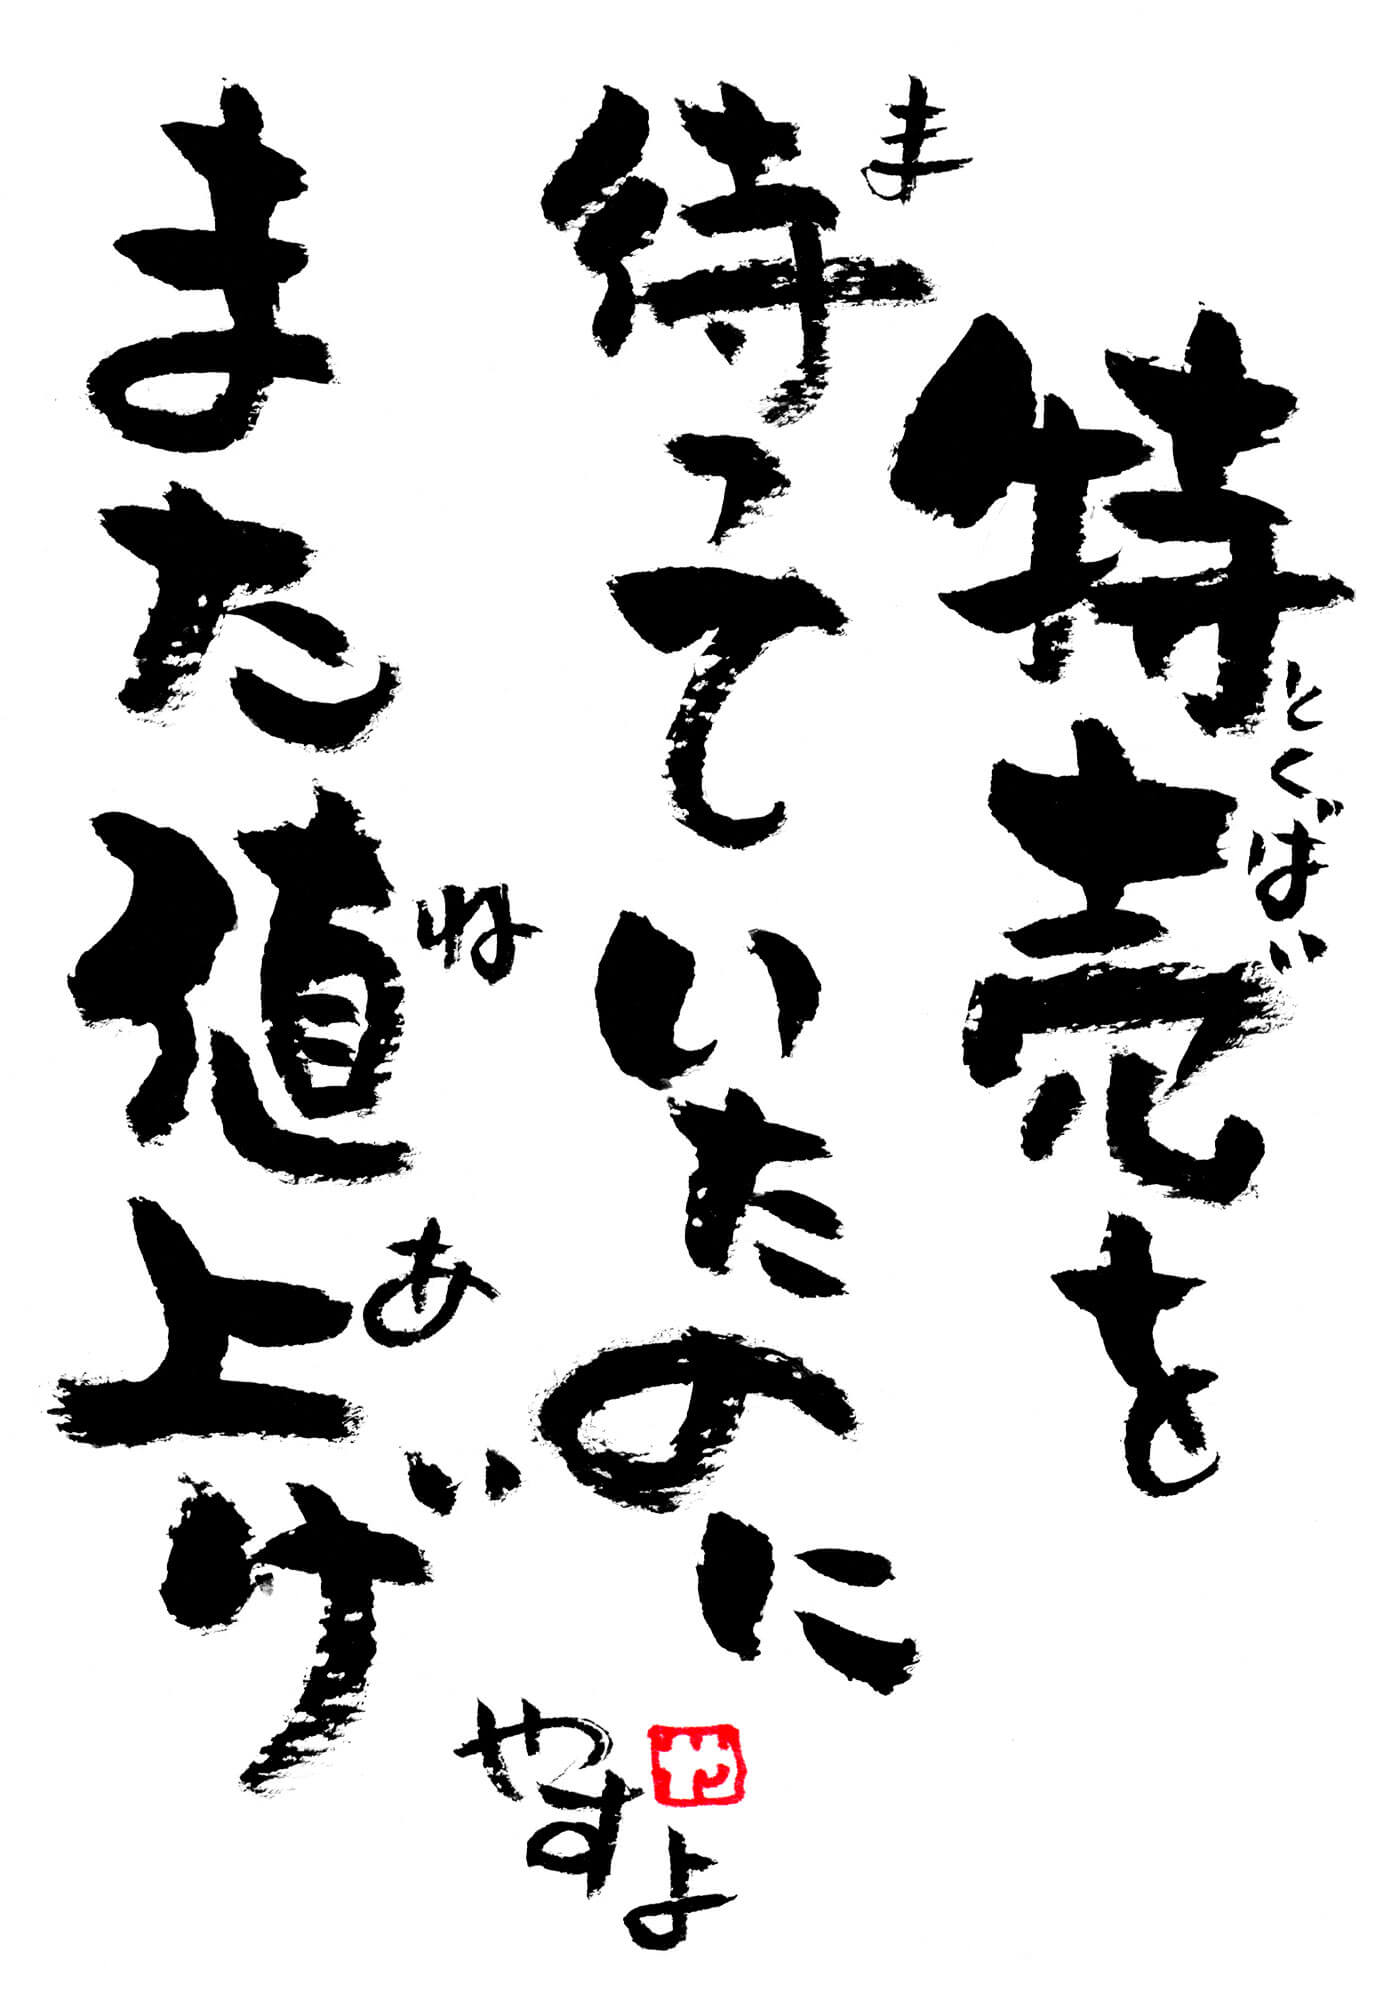 特売を
とくばい
待っていたのに
ま
また値上げ
ね
あ
やすよ
や